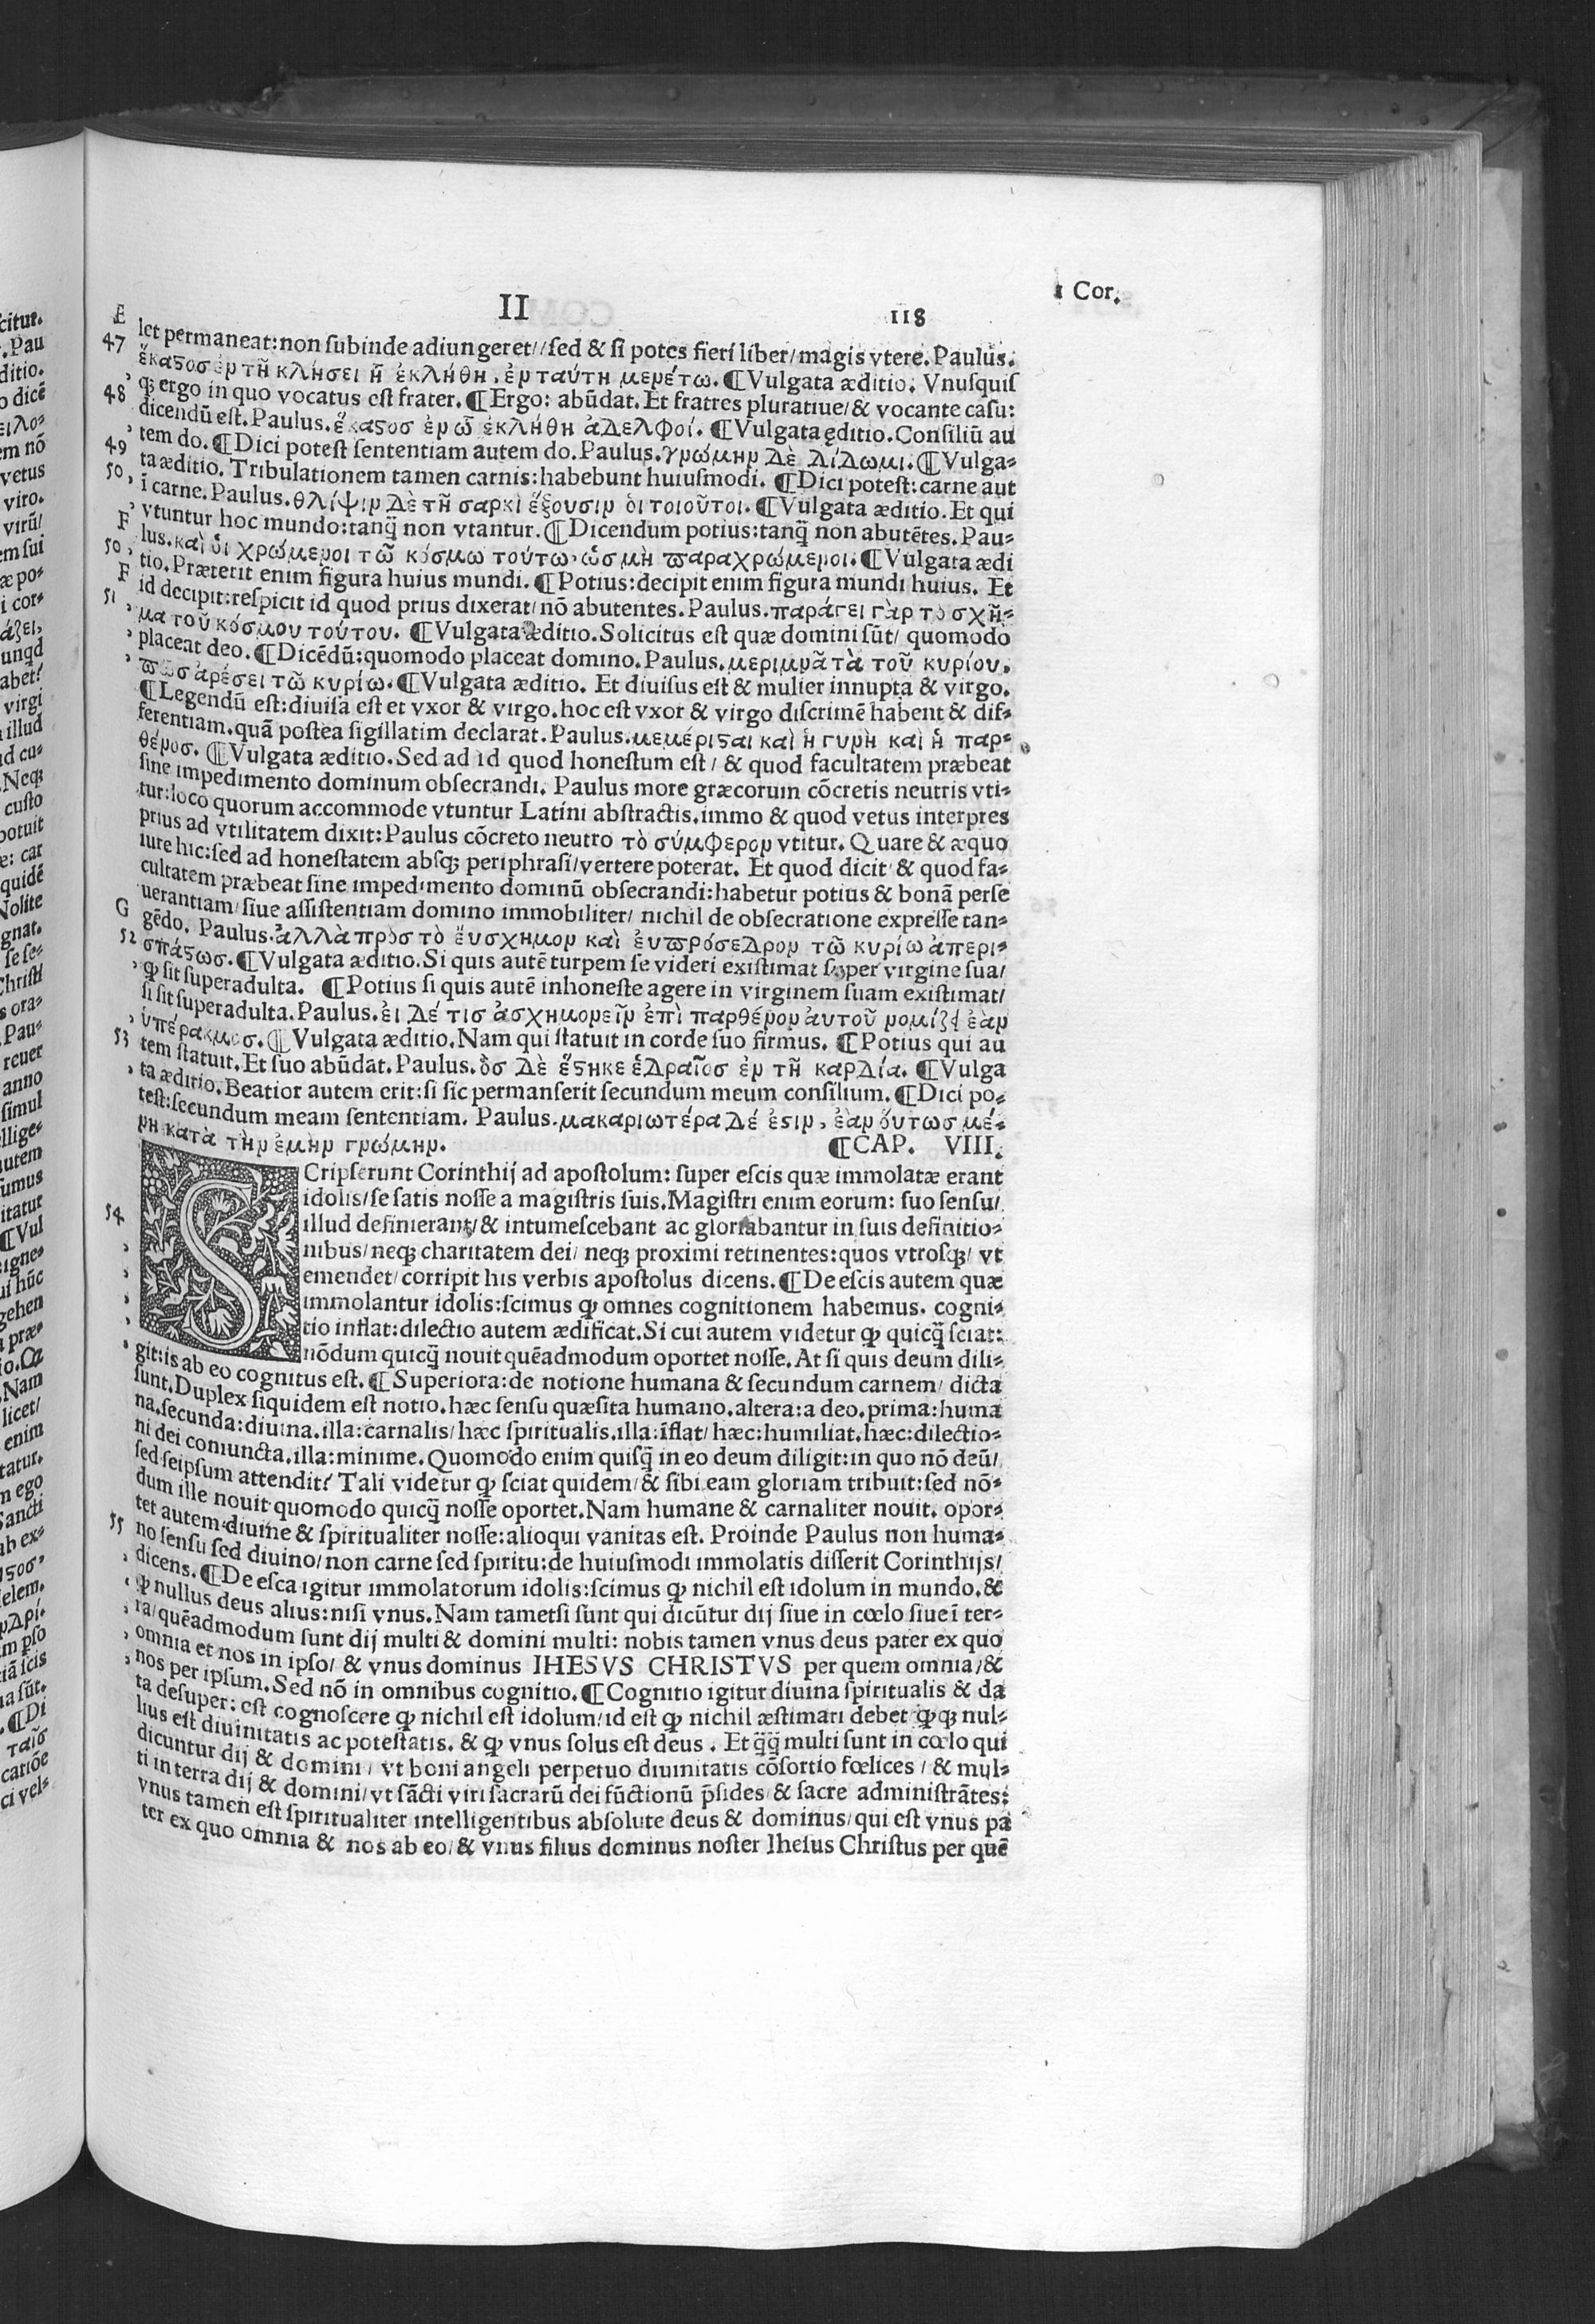 II 118 1 Cor.
E let permaneat: non subinde adiungeret// sed & si potes fieri liber/ magis vtere. Paulus.
47 ἕκαςος ἐν τῆ κλήσει ἧ ἐκλήθη, ἐν ταύτη μενέτω. ¶Vulgata æditio. Vnusquis
qꝫ ergo in quo vocatus est frater. ¶Ergo: abūdat. Et fratres pluratiue/ & vocante casu:
48 dicendū est. Paulus. ἕκαςος ἐν ὧ ἐκλήθη ἀδελφοί. ¶Vulgata ęditio. Consiliū au
tem do. ¶Dici potest sententiam autem do. Paulus. γνώμην δὲ δίδωμι. ¶Vulga-
49 ta æditio. Tribulationem tamen carnis: habebunt huiusmodi. ¶Dici potest: carne aut
50 i carne. Paulus. θλίψιν δὲ τῆ σαρκὶ ἕξουσιν ὁι τοιοῦτοι. ¶Vulgata æditio. Et qui
vtuntur hoc mundo: tanq̄ non vtantur. ¶Dicendum potius: tanq̄ non abutētes. Pau-
F lus. καὶ ὁι χρώμενοι τῶ κόσμω τούτω, ὡσ μὴ παραχρώμενοι. ¶Vulgata ædi
50 tio. Præterit enim figura huius mundi. ¶Potius: decipit enim figura mundi huius. Et
F id decipit: respicit id quod prius dixerat/ nō abutentes. Paulus. παράγει γὰρ τὸ σχῆ-
51 μα τοῦ κόσμου τούτου. ¶Vulgata æditio. Solicitus est quæ domini sūt/ quomodo
placeat deo. ¶Dicēdū: quomodo placeat domino. Paulus. μεριμνᾶ τὰ τοῦ κυρίου,
πῶσ ἀρέσει τῶ κυρίω. ¶Vulgata æditio. Et diuisus est & mulier innupta & virgo.
¶Legendū est: diuisa est et vxor & virgo. hoc est vxor & virgo discrimē habent & dif-
ferentiam. quā postea sigillatim declarat. Paulus. μεμέριςαι καὶ ἡ γυνὴ καὶ ἡ παρ-
θένοσ. ¶Vulgata æditio. Sed ad id quod honestum est/ & quod facultatem præbeat
sine impedimento dominum obsecrandi. Paulus more græcorum cōcretis neutris vti-
tur: loco quorum accommode vtuntur Latini abstractis. immo & quod vetus interpres
prius ad vtilitatem dixit: Paulus cōcreto neutro τὸ σύμφερον vtitur. Quare & æquo
iure hic: sed ad honestatem absqꝫ periphrasi/ vertere poterat. Et quod dicit & quod fa-
cultatem præbeat sine impedimento dominū obsecrandi: habetur potius & bonā perse
uerantiam/ siue assistentiam domino immobiliter/ nichil de obsecratione expresse tan-
G gēdo. Paulus. ἀλλὰ πρὸσ τὸ ἔυσχημον καὶ ἐυπρόσεδρον τῶ κυρίω ἀπερι-
52 σπάςωσ. ¶Vulgata æditio. Si quis autē turpem se videri existimat super virgine sua/
ꝙ sit superadulta. ¶Potius si quis autē inhoneste agere in virginem suam existimat/
si sit superadulta. Paulus. ἐι δέ τισ ἀσχημονεῖν ἐπὶ παρθένον ἀυτοῦ νομίζει ἐὰν
ὑπέρακμοσ. ¶Vulgata æditio. Nam qui statuit in corde suo firmus. ¶Potius qui au
53 tem statuit. Et suo abūdat. Paulus. ὃσ δὲ ἕςηκε ἑδραῖοσ ἐν τῆ καρδία. ¶Vulga
ta æditio. Beatior autem erit: si sic permanserit secundum meum consilium. ¶Dici po-
test: secundum meam sententiam. Paulus. μακαριωτέρα δέ ἐςιν, ἐὰν ὅυτωσ μέ-
νη κατὰ τὴν ἐμὴν γνώμην. ¶CAP. VIII.
SCripserunt Corinthij ad apostolum: super escis quæ immolatæ erant
idolis/ se satis nosse a magistris suis. Magistri enim eorum: suo sensu/
54 illud definierant/ & intumescebant ac gloriabantur in suis definitio-
nibus/ neqꝫ charitatem dei/ neqꝫ proximi retinentes: quos vtrosqꝫ/ vt
emendet/ corripit his verbis apostolus dicens. ¶De escis autem quæ
immolantur idolis: scimus ꝙ omnes cognitionem habemus. cogni-
tio inflat: dilectio autem ædificat. Si cui autem videtur ꝙ quicq̄ sciat:
nōdum quicq̄ nouit quēadmodum oportet nosse. At si quis deum dili-
git: is ab eo cognitus est. ¶Superiora: de notione humana & secundum carnem/ dicta
sunt. Duplex siquidem est notio. hæc sensu quæsita humano. altera: a deo. prima: huma
na. secunda: diuina. illa: carnalis/ hæc spiritualis. illa: īflat/ hæc: humiliat. hæc: dilectio-
ni dei coniuncta. illa: minime. Quomodo enim quisq̄ in eo deum diligit: in quo nō deū/
sed seipsum attendit? Tali videtur ꝙ sciat quidem/ & sibi eam gloriam tribuit: sed nō-
dum ille nouit quomodo quicq̄ nosse oportet. Nam humane & carnaliter nouit. opor-
tet autem: diuine & spiritualiter nosse: alioqui vanitas est. Proinde Paulus non huma-
55 no sensu sed diuino/ non carne sed spiritu: de huiusmodi immolatis disserit Corinthijs/
dicens. ¶De esca igitur immolatorum idolis: scimus ꝙ nichil est idolum in mundo. &
ꝙ nullus deus alius: nisi vnus. Nam tametsi sunt qui dicūtur dij siue in cœlo siue ī ter-
ra/ quēadmodum sunt dij multi & domini multi: nobis tamen vnus deus pater ex quo
omnia et nos in ipso/ & vnus dominus IHESVS CHRISTVS per quem omnia/ &
nos per ipsum. Sed nō in omnibus cognitio. ¶Cognitio igitur diuina spiritualis & da
ta desuper: est cognoscere ꝙ nichil est idolum/ id est ꝙ nichil æstimari debet ꝙꝙ nul-
lius est diuinitatis ac potestatis. & ꝙ vnus solus est deus. Et q̄q̄ multi sunt in cœlo qui
dicuntur dij & domini/ vt boni angeli perpetuo diuinitatis cōsortio fœlices/ & mul-
ti in terra dij & domini/ vt sācti viri sacrarū dei fūctionū p̄sides/ & sacre administrātes:
vnus tamen est spiritualiter intelligentibus absolute deus & dominus/ qui est vnus pa
ter ex quo omnia & nos ab eo/ & vnus filius dominus noster Ihesus Christus per quē